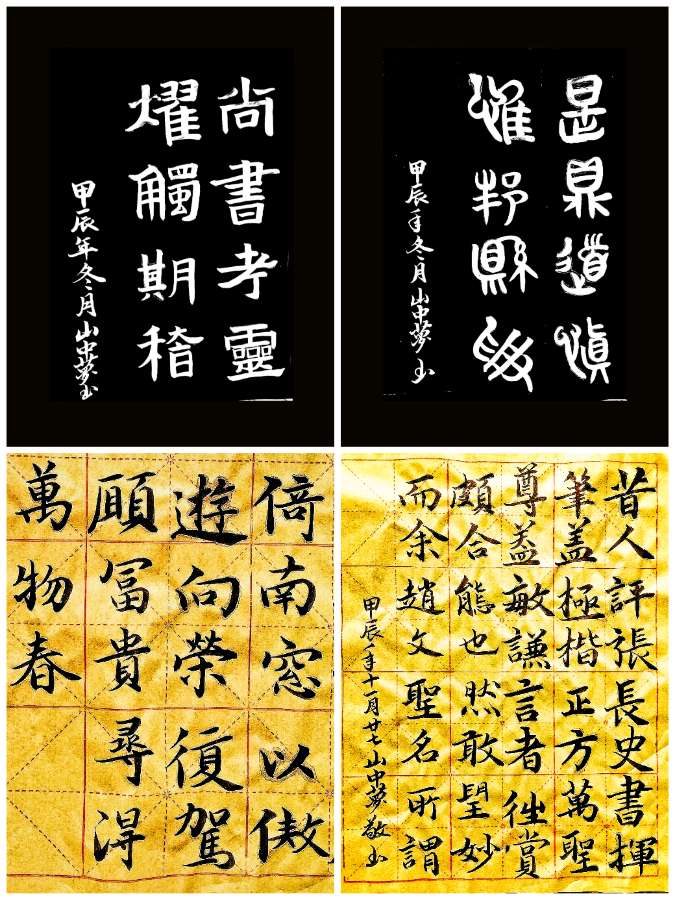 尚書考靈
燿觸期稽
甲辰年冬月山中夢书
是鼎道慎
惟邦縣
甲辰年冬月山中夢书
倚南窓以傲
遊向榮復駕
顧冨貴尋淂
萬物春
昔人評張長史書揮
筆盖極楷正方萬聖
尊盖敏謙言者徃賞
頗合態也然敢望妙
而余趙文聖名所謂
甲辰年十一月廿七山中夢敬书